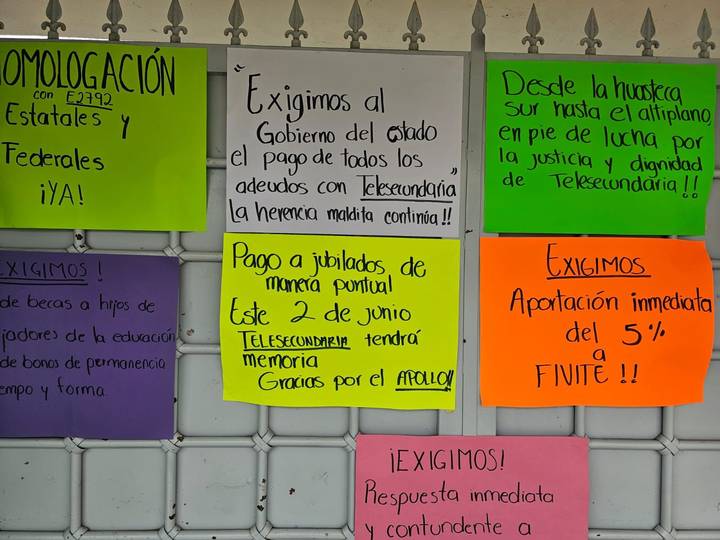 OMOLOGACIÓN
con E2792
Estatales y
Federales
¡YA!
"Exigimos al
Gobierno del estado
el pago de todos los
adeudos con Telesecundaria"
la herencia maldita continúa!!
Desde la huasteca
sur hasta el altiplano,
en pie de lucha por
la justicia y dignidad
de Telesecundaria!!
EXIGIMOS!
de becas a hijos de
jadores de la educación
de bonos de permanencia
empo y forma.
Pago a jubilados, de
manera puntual
Este 2 de junio
TELESECUNDARIA tendrá
memoria
Gracias por el APOLLO!!
EXIGIMOS
Aportación inmediata
del 5%
a
FIVITE!!
¡EXIGIMOS!
Respuesta inmediata
y contundente a